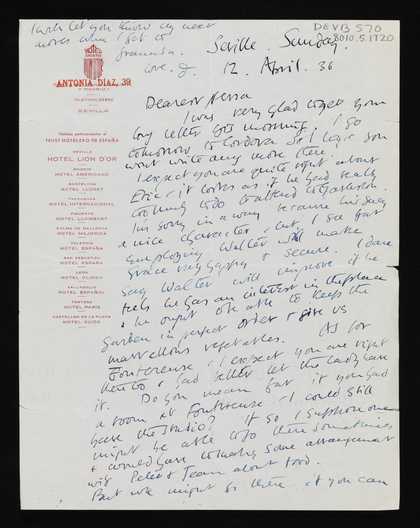 I will let you know my next
moves when I get to
Granada.
love. J.
DEVB 570
8010.5.1720
ANTONIA DIAZ, 39
SEVILLA
TRUST HOTELERO DE ESPAÑA
SEVILLA
HOTEL LION D'OR
HOTEL AMERICANO
BARCELONA
HOTEL LLORET
HOTEL INTERNACIONAL
HOTEL MALLORCA
VALENCIA
HOTEL ESPAÑA
SAN SEBASTIAN
HOTEL ESPAÑA
LEON
HOTEL OLIDEN
VALLADOLID
HOTEL ESPAÑOL
HOTEL PARIS
CASTELLON DE LA PLANA
HOTEL SUIZO
Seville. Sunday.
12. April. 36
Dearest
I was very glad to get your
long letter this morning. I go
tomorrow to Cordova so I hope you
wont write any more there
I expect you are quite right about
Eric. it looks as if he had really
too much to do to attend to garden.
Im sorry in a way because hes such
a nice character, but I see that
employing Walter will make
Grace very happy & secure. I dare
say Walter will improve if he
feels he has an interest in the place
& he ought to be able to keep the
garden in perfect order & give us
marvellous vegetables. As for
Fontcreuse, I expect you are right
then too & had better let the lady have
it. Do you mean that if you had
a room at Fontcreuse I could still
have the studio? If so I suppose one
might be able to go there sometimes
& would have to make some arrangement
with Peter & Team about food.
But we might go there if you can